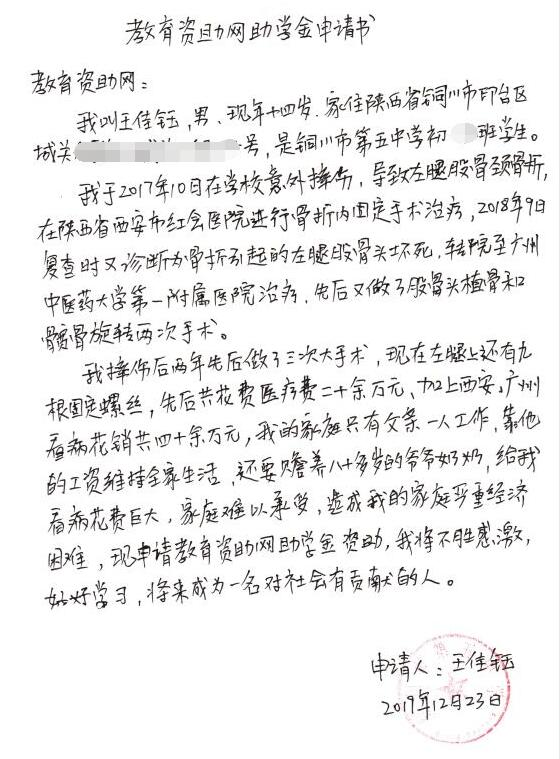 教育资助网助学金申请书
教育资助网：
我叫王佳钰，男、现年十四岁．家住陕西省铜川市印台区
城关 号，是铜川市第五中学初 班学生。
我于2017年10日在学校意外摔伤，导致左腿股骨颈骨折，
在陕西省西安市红会医院进行骨折内固定手术治疗，2018年9日
复查时又诊断为骨折引起的左腿股骨头坏死，转院至广州
中医药大学第一附属医院治疗，先后又做了股骨头植骨和
髋骨旋转两次手术。
我摔伤后两年先后做了三次大手术，现在左腿上还有九
根固定螺丝，先后共花费医疗费二十余万元、加上西安、广州
看病花销共四十余万元，我的家庭只有父亲一人工作，靠他
的工资维持全家生活，还要赡养八十多岁的爷爷奶奶，给我
看病花费巨大，家庭难以承受，造成我的家庭严重经济
困难，现申请教育资助网助学金资助，我将不胜感激，
好好学习，将来成为一名对社会有贡献的人。
申请人：王佳钰
2019年12月23日